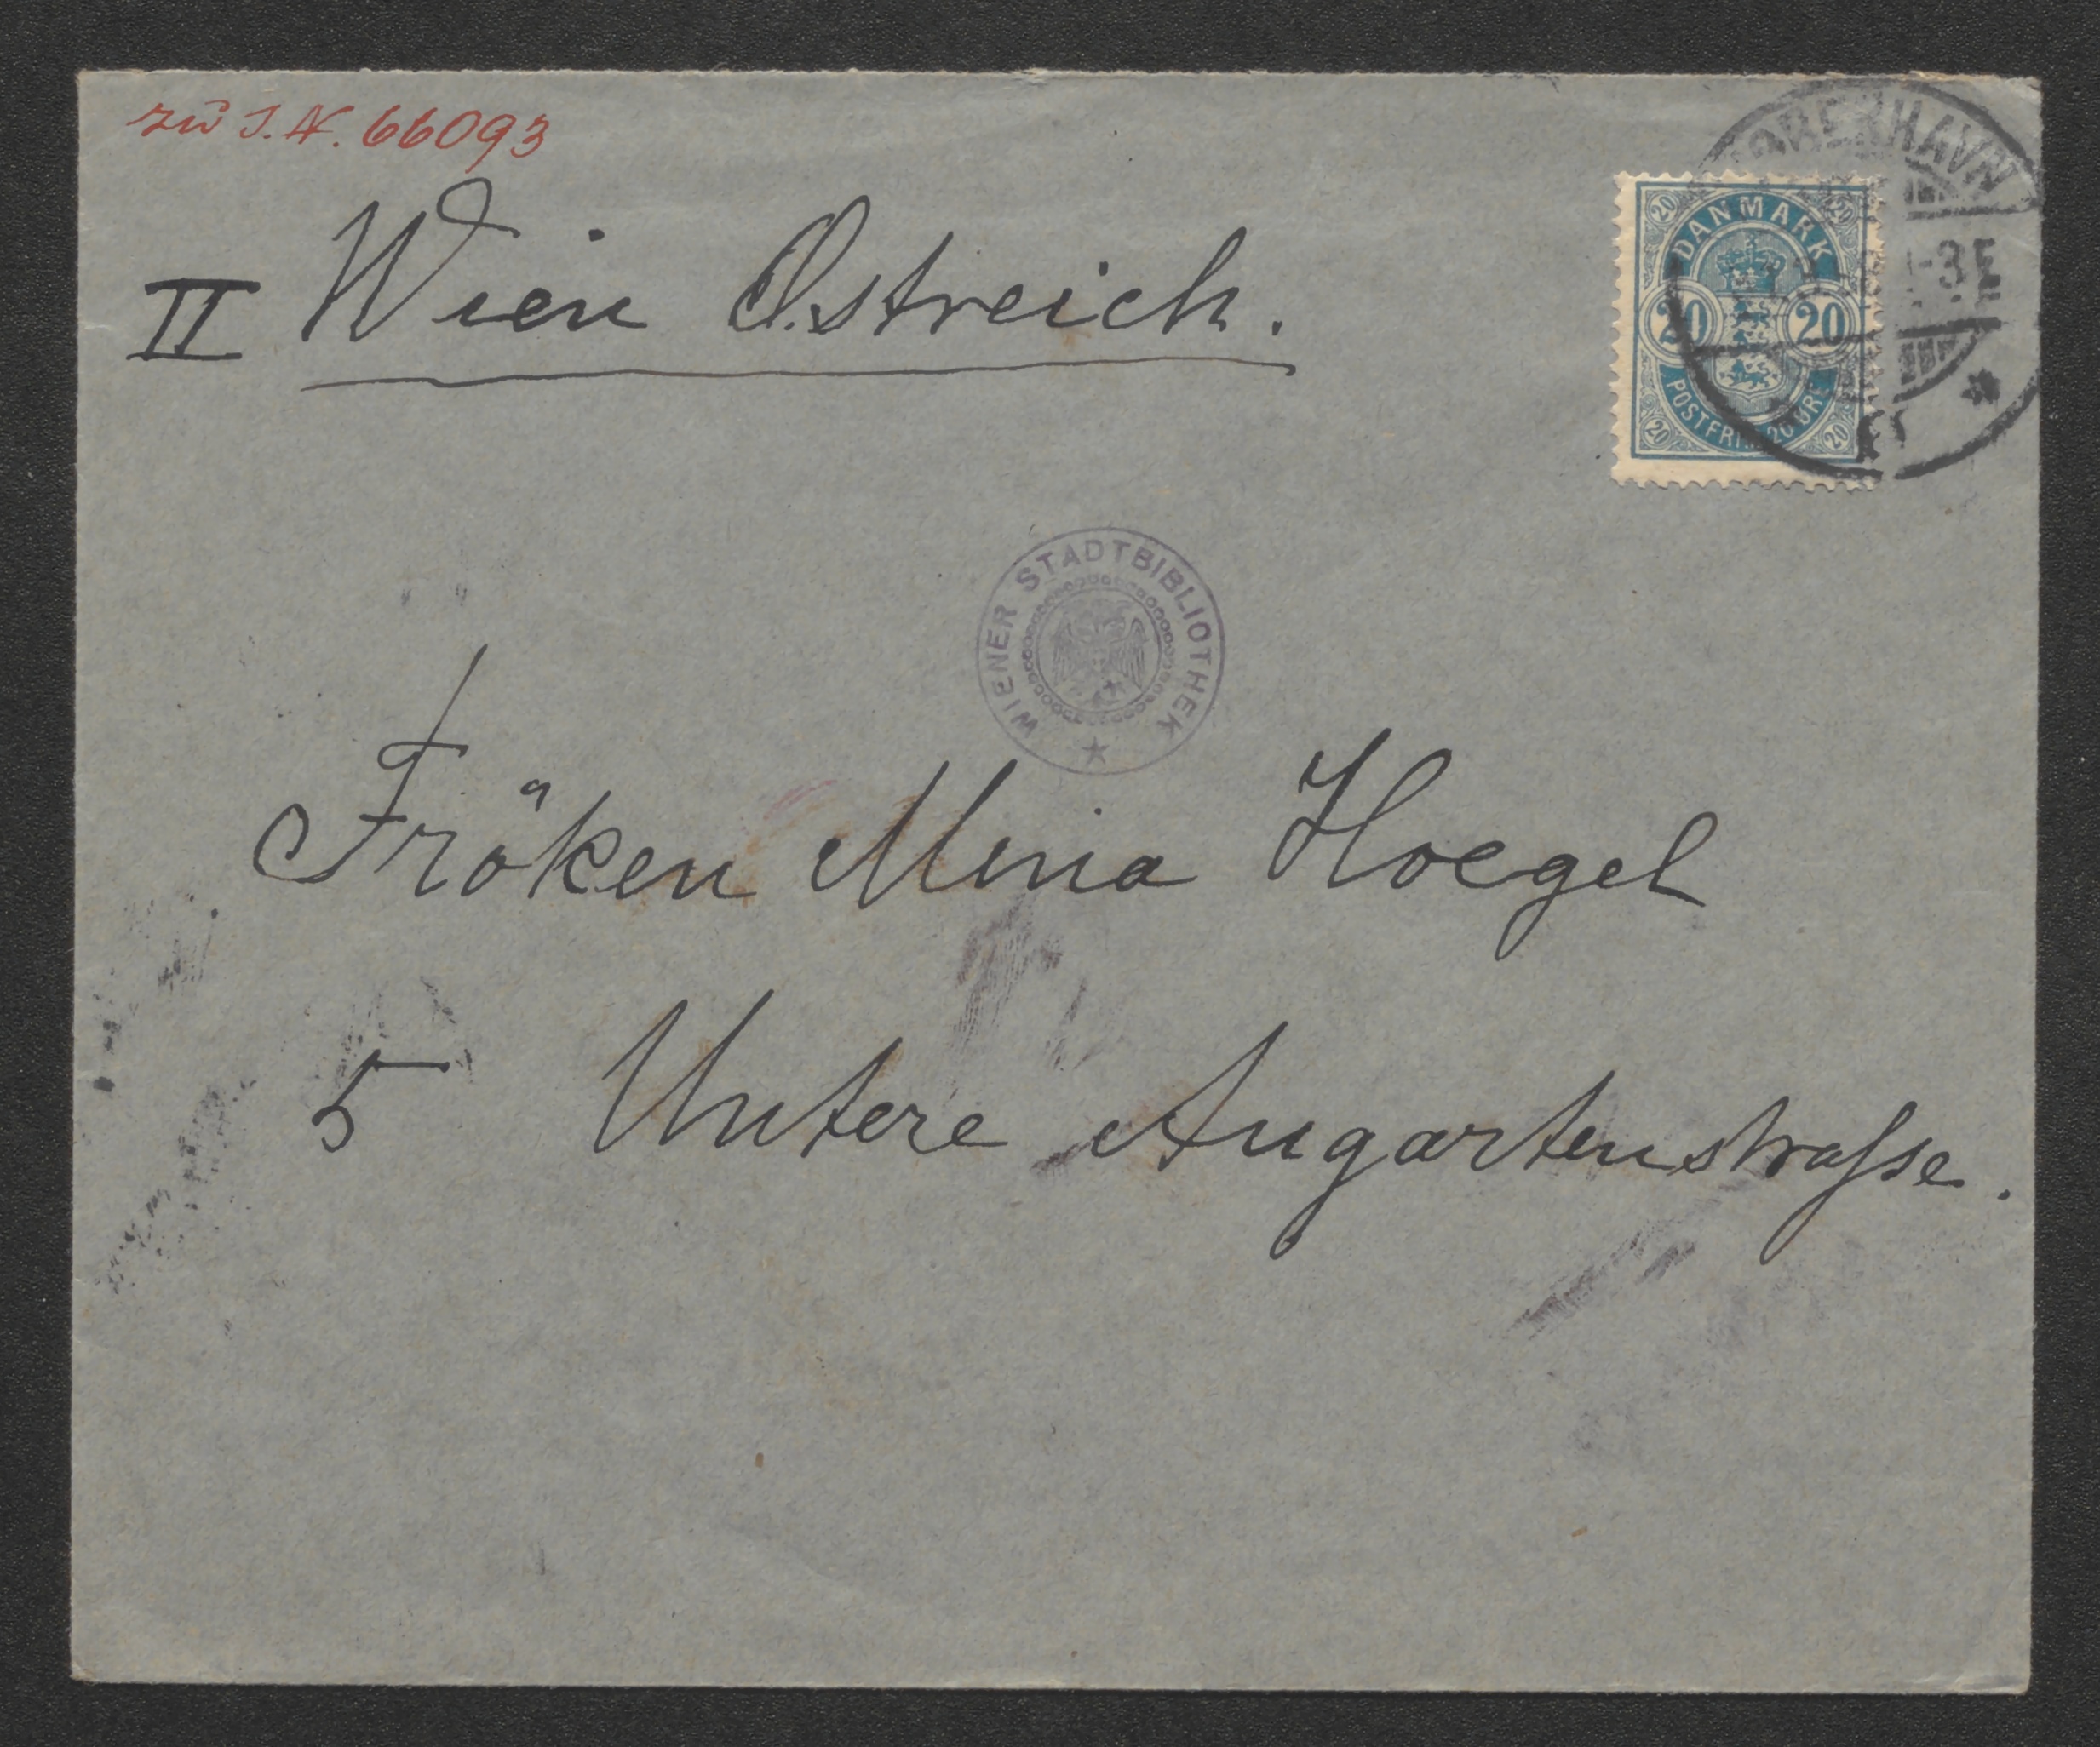 zu J.N. 66093
KJØBENHAVN
II Wien Ostreich.
20 20
DANMARK
20 20
POSTFRIM. 20 ØRE
20 20
WIENER STADTBIBLIOTHEK
Fröken Mina Hoegel
5 Untere Augartenstraſse.